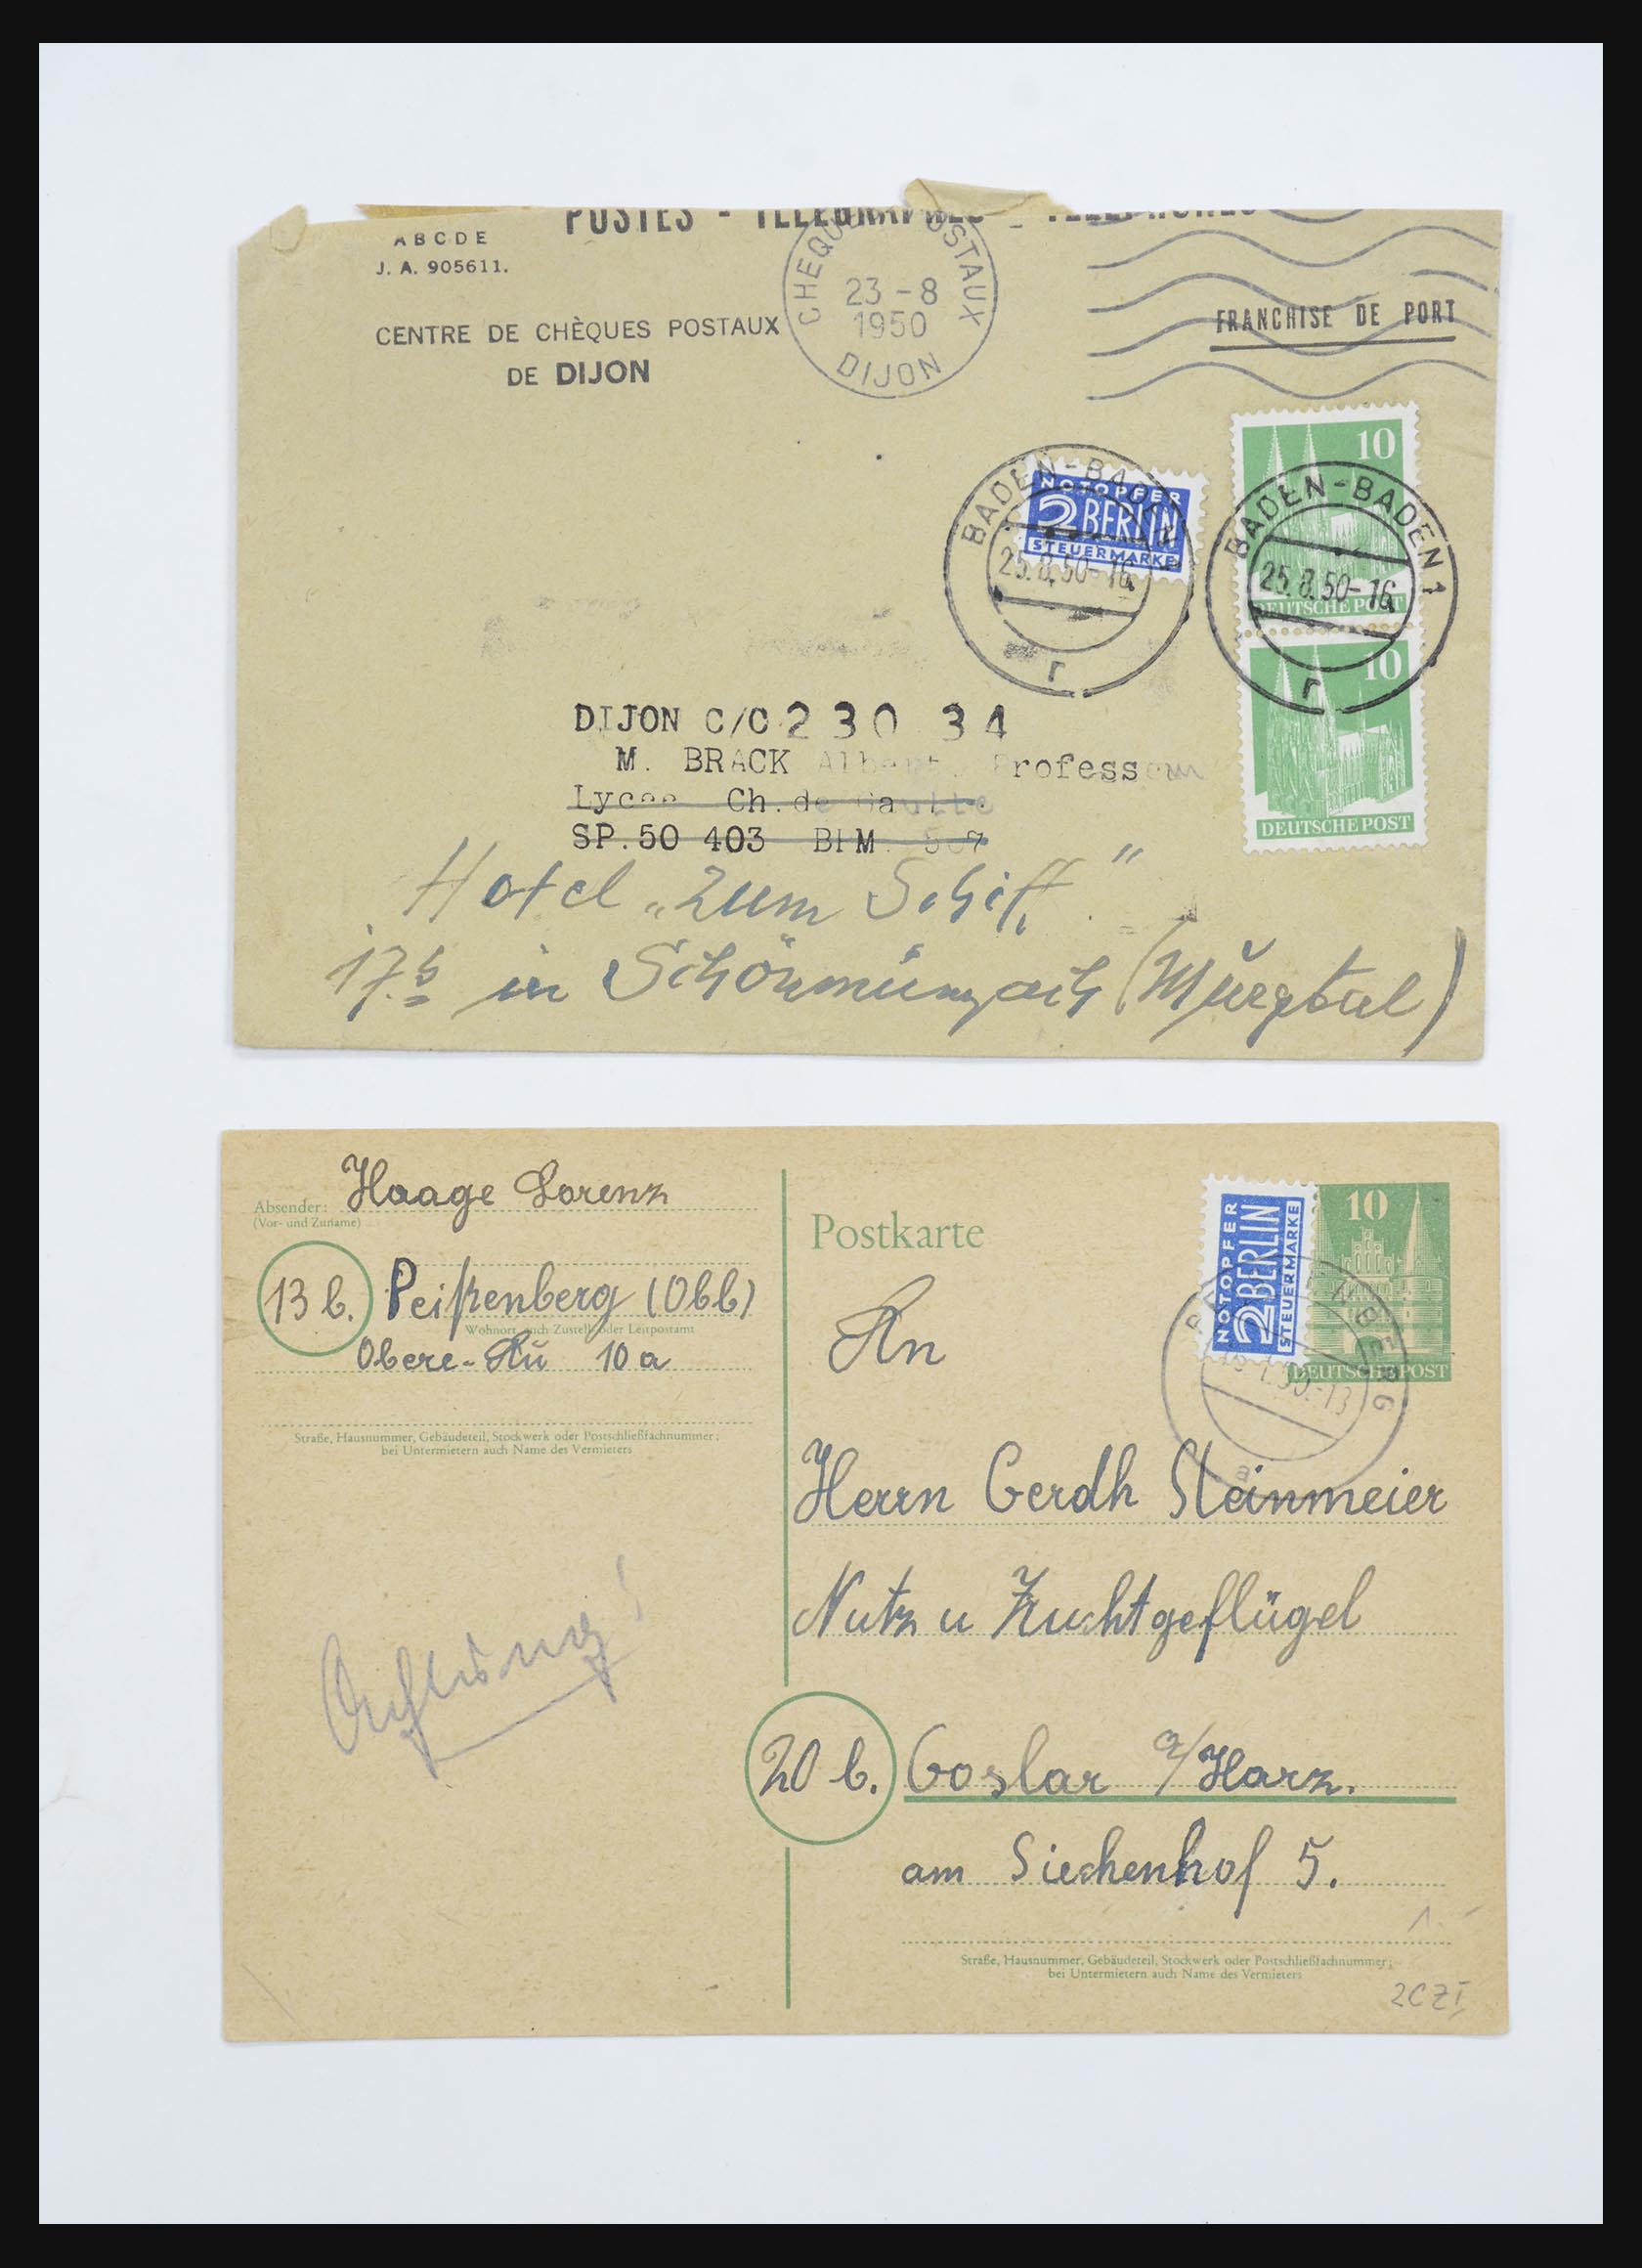 POSTES - TELEGRAPHES - TELEPHONES
ABCDE
J. A. 905611.
CENTRE DE CHÈQUES POSTAUX
DE DIJON
CHEQUES POSTAUX
23 - 8
1950
DIJON
FRANCHISE DE PORT
NOTOPFER
2 BERLIN
STEUERMARKE
BADEN-BADEN 1
25.8.50-16
r
10
DEUTSCHE POST
BADEN-BADEN 1
25.8.50-16
r
10
DEUTSCHE POST
DIJON C/C 230 34
M. BRACK Albert Professeur
Lycee Ch.de Gaulle
SP.50 403 BPM 507
Hotel „Zum Schiff"
17b in Schönmünzach (Murgtal)
Absender: Haage Lorenz
(Vor- und Zuname)
13 b. Peißenberg (Obb)
Wohnort, auch Zustell- oder Leitpostamt
Obere-Au 10 a
Straße, Hausnummer, Gebäudeteil, Stockwerk oder Postschließfachnummer;
bei Untermietern auch Name des Vermieters
Achtung!
Postkarte
NOTOPFER
2 BERLIN
STEUERMARKE
10
DEUTSCHE POST
PEISSENBERG
a
An
Herrn Gerdh Steinmeier
Nutz u Zuchtgeflügel
20 b. Goslar a/Harz.
am Siechenhof 5.
Straße, Hausnummer, Gebäudeteil, Stockwerk oder Postschließfachnummer;
bei Untermietern auch Name des Vermieters
1.-
2CZI